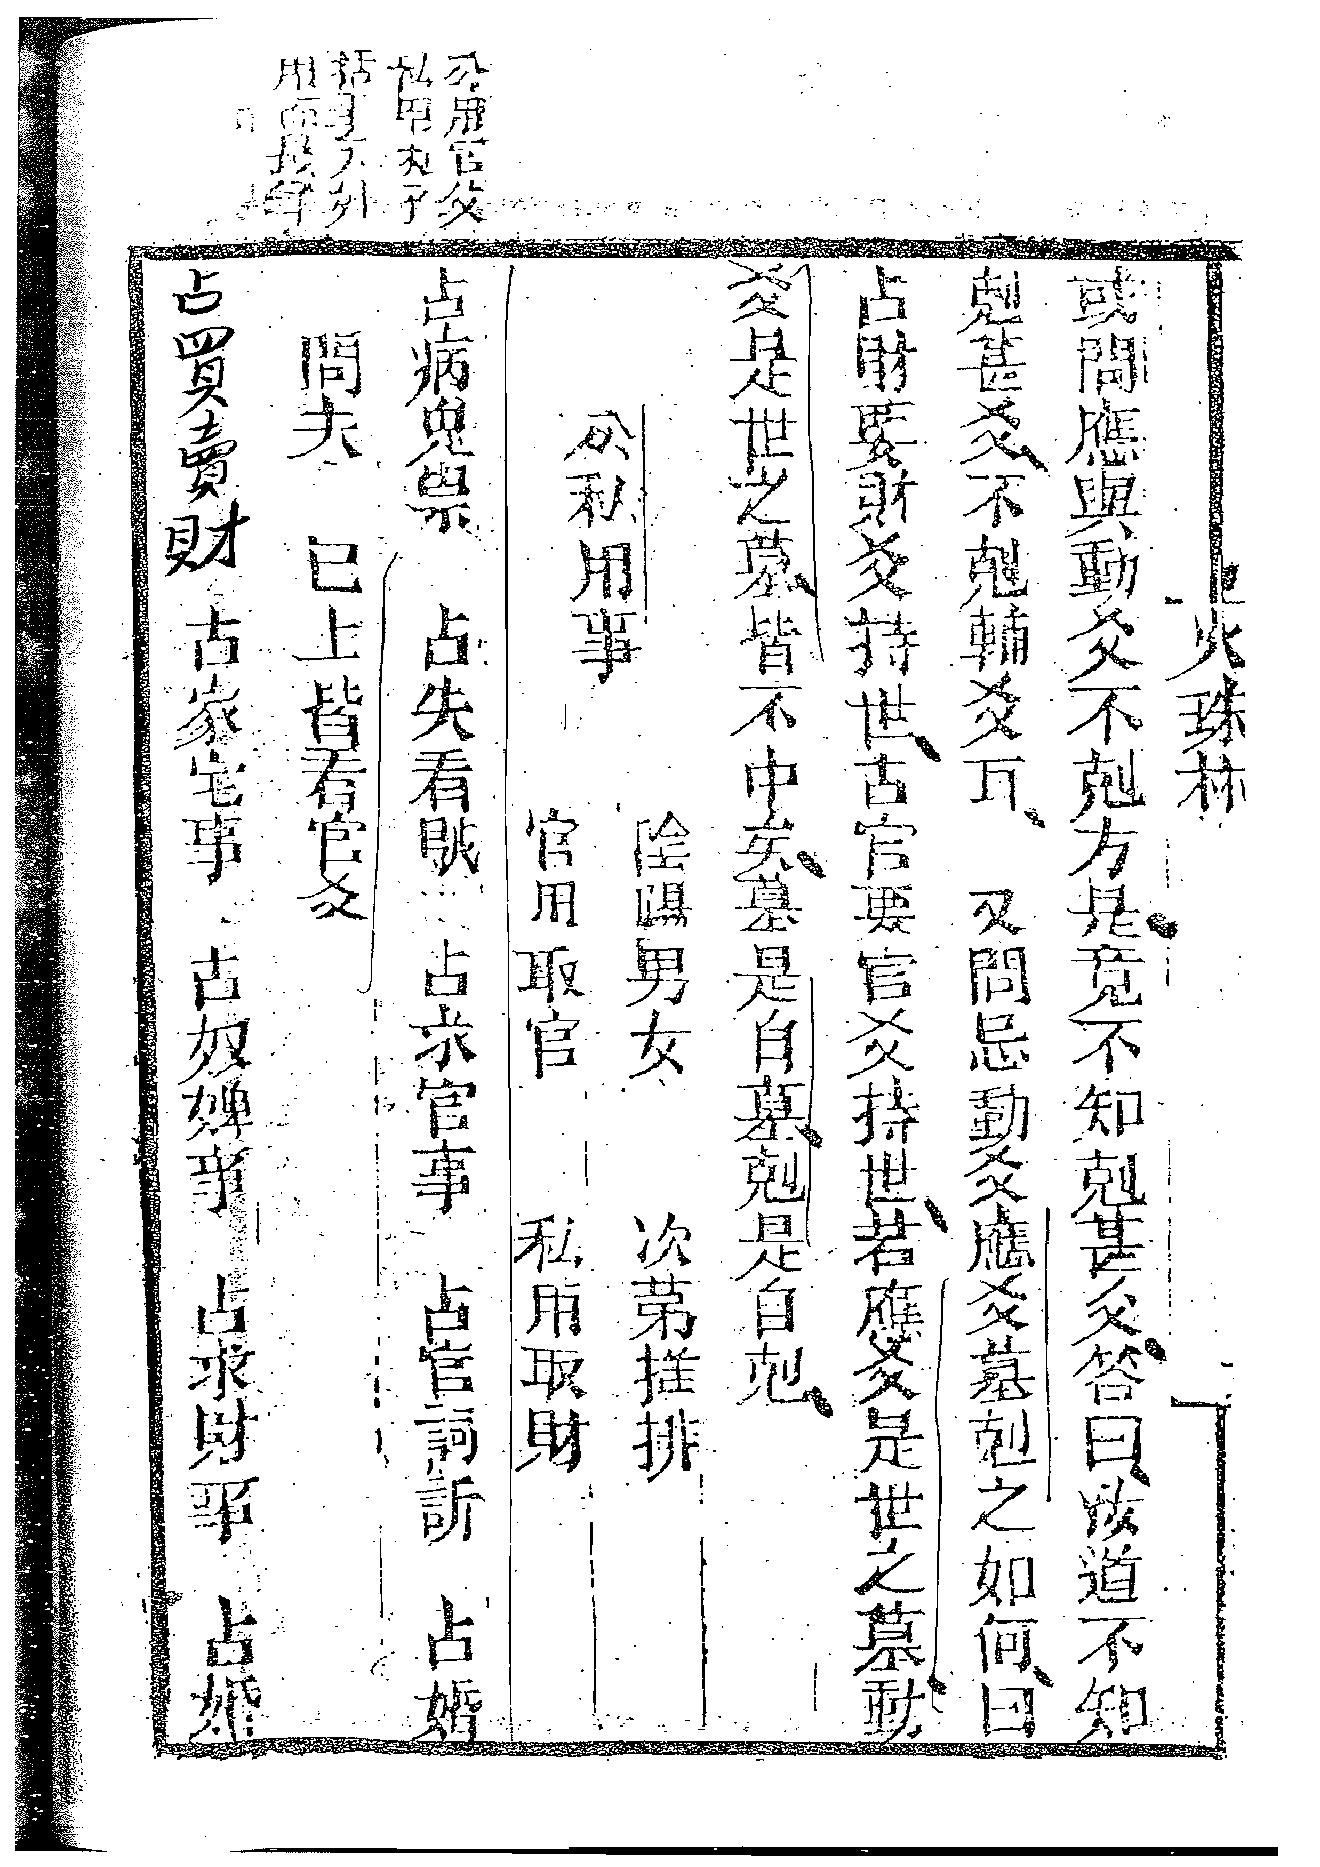 火珠林
或問應與動爻不剋方是竟不知剋甚爻答曰故道不知
剋甚爻不剋輔爻瓦 又問忌動爻應爻墓剋之如何曰
占財要財爻持世占官要官爻持世若應爻是世之墓動
爻是世之墓皆不中矣墓是自墓剋是自剋
陰陽男女 次第推排
公私用事
官用取官 私用取財
占病鬼祟 占失看賊 占求官事 占官詞訴 占婚
問夫 已上皆看官爻
占買賣財 占家宅事 占奴婢事 占求財事 占婚
公用官爻
私用